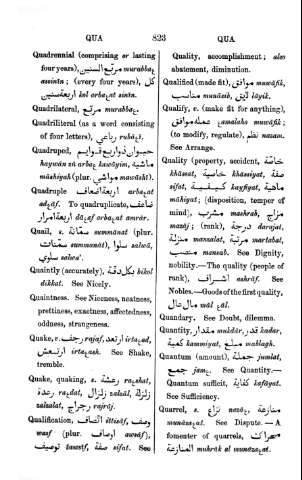 QUA 823 QUA
Quadrennial (comprising or lasting
four years), مربّع السنين murabbaʿ
assinīn; (every four years), كل
اربعة سنين kol arbaʿat sinīn.
Quadrilateral, مربّع murabbaʿ.
Quadriliteral (as a word consisting
of four letters), رباعي rubāʿī.
Quadruped, حيوان ذو اربع قوايم
ḥaywān zū arbaʿ kawāyim, ماشية
māshiyah (plur. مواشي mawāshī).
Quadruple اربعة اضعاف arbaʿat
aḍʿāf. To quadruplicate, ضاعف
اربعة امرار dāʿaf arbaʿat amrār.
Quail, s. سمّنة summānat (plur.
سمّنات summanāt), سلوا salwa,
سلوى salwa'.
Quaintly (accurately), بكل دقة bikol
dikkat. See Nicely.
Quaintness. See Niceness, neatness,
prettiness, exactness, affectedness,
oddness, strangeness.
Quake, v. رجف rajaf, ارتعد irtaʿad,
ارتعش irtaʿash. See Shake,
tremble.
Quake, quaking, s. رعشة raʿshat,
رعدة raʿdat, زلزال zalzāl, زلزلة
zalzalat, رجراج rajrāj.
Qualification, اتّصاف ittiṣāf, وصف
wasf (plur. اوصاف awsāf),
توصيف tawsīf, صفة sifat. See
Quality, accomplishment; also
abatement, diminution.
Qualified (made fit), موافق muwāfik,
مناسب munāsib, لايق lāyik.
Qualify, v. (make fit for anything),
عمله موافق ʿamalaho muwāfik;
(to modify, regulate), نظم nazam.
See Arrange.
Quality (property, accident, خاصّة
khāssat, خاصية khāssiyat, صفة
sifat, كيفية kayfiyat, ماهية
māhiyat; (disposition, temper of
mind), مشرب mashrab, مزاج
mazāj; (rank), درجة darajat,
منزلة manzalat, مرتبة martabat,
منصب mansab. See Dignity,
nobility.—The quality (people of
rank), اشراف ashrāf. See
Nobles.—Goods of the first quality,
مال عال māl ʿāl.
Quandary. See Doubt, dilemma.
Quantity, مقدار mukdār, قدر kadar,
كمية kammiyat, مبلغ mablagh.
Quantum (amount), جملة jumlat,
جمع jamʿ. See Quantity.—
Quantum sufficit, كفاية kafāyat.
See Sufficiency.
Quarrel, s. نزاع nazāʿ, منازعة
munāzaʿat. See Dispute.—A
fomenter of quarrels, محراك
المنازعة muhrāk al munāzaʿat.